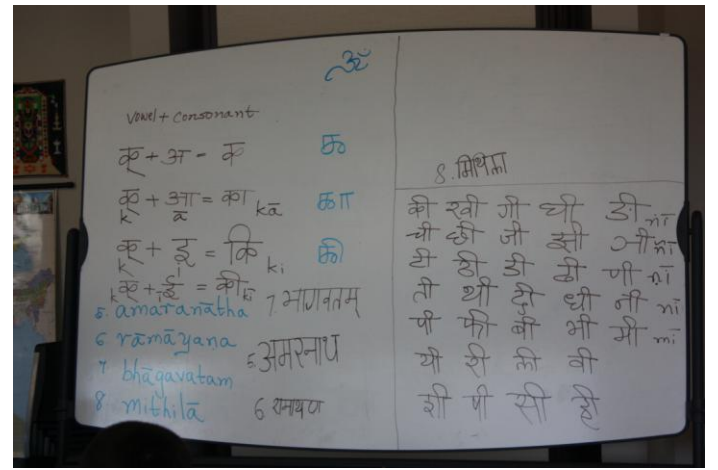 ॐ
Vowel + consonant
क् + अ - क
क् + आ = का kā
k ā
क् + इ = कि ki
k i
k क् + ī ई = की kī
5. amaranātha
6 rāmāyana
7 bhāgavatam
8 mithilā
7. भागवतम्
5 अमरनाथ
6 रामायण
8. मिथिला
की खी गी घी ङी ṅī
ची छी जी झी ञी ñī
टी ठी डी ढी णी ṇī
ती थी दी धी नी nī
पी फी बी भी मी mī
यी री ली वी
शी षी सी ही